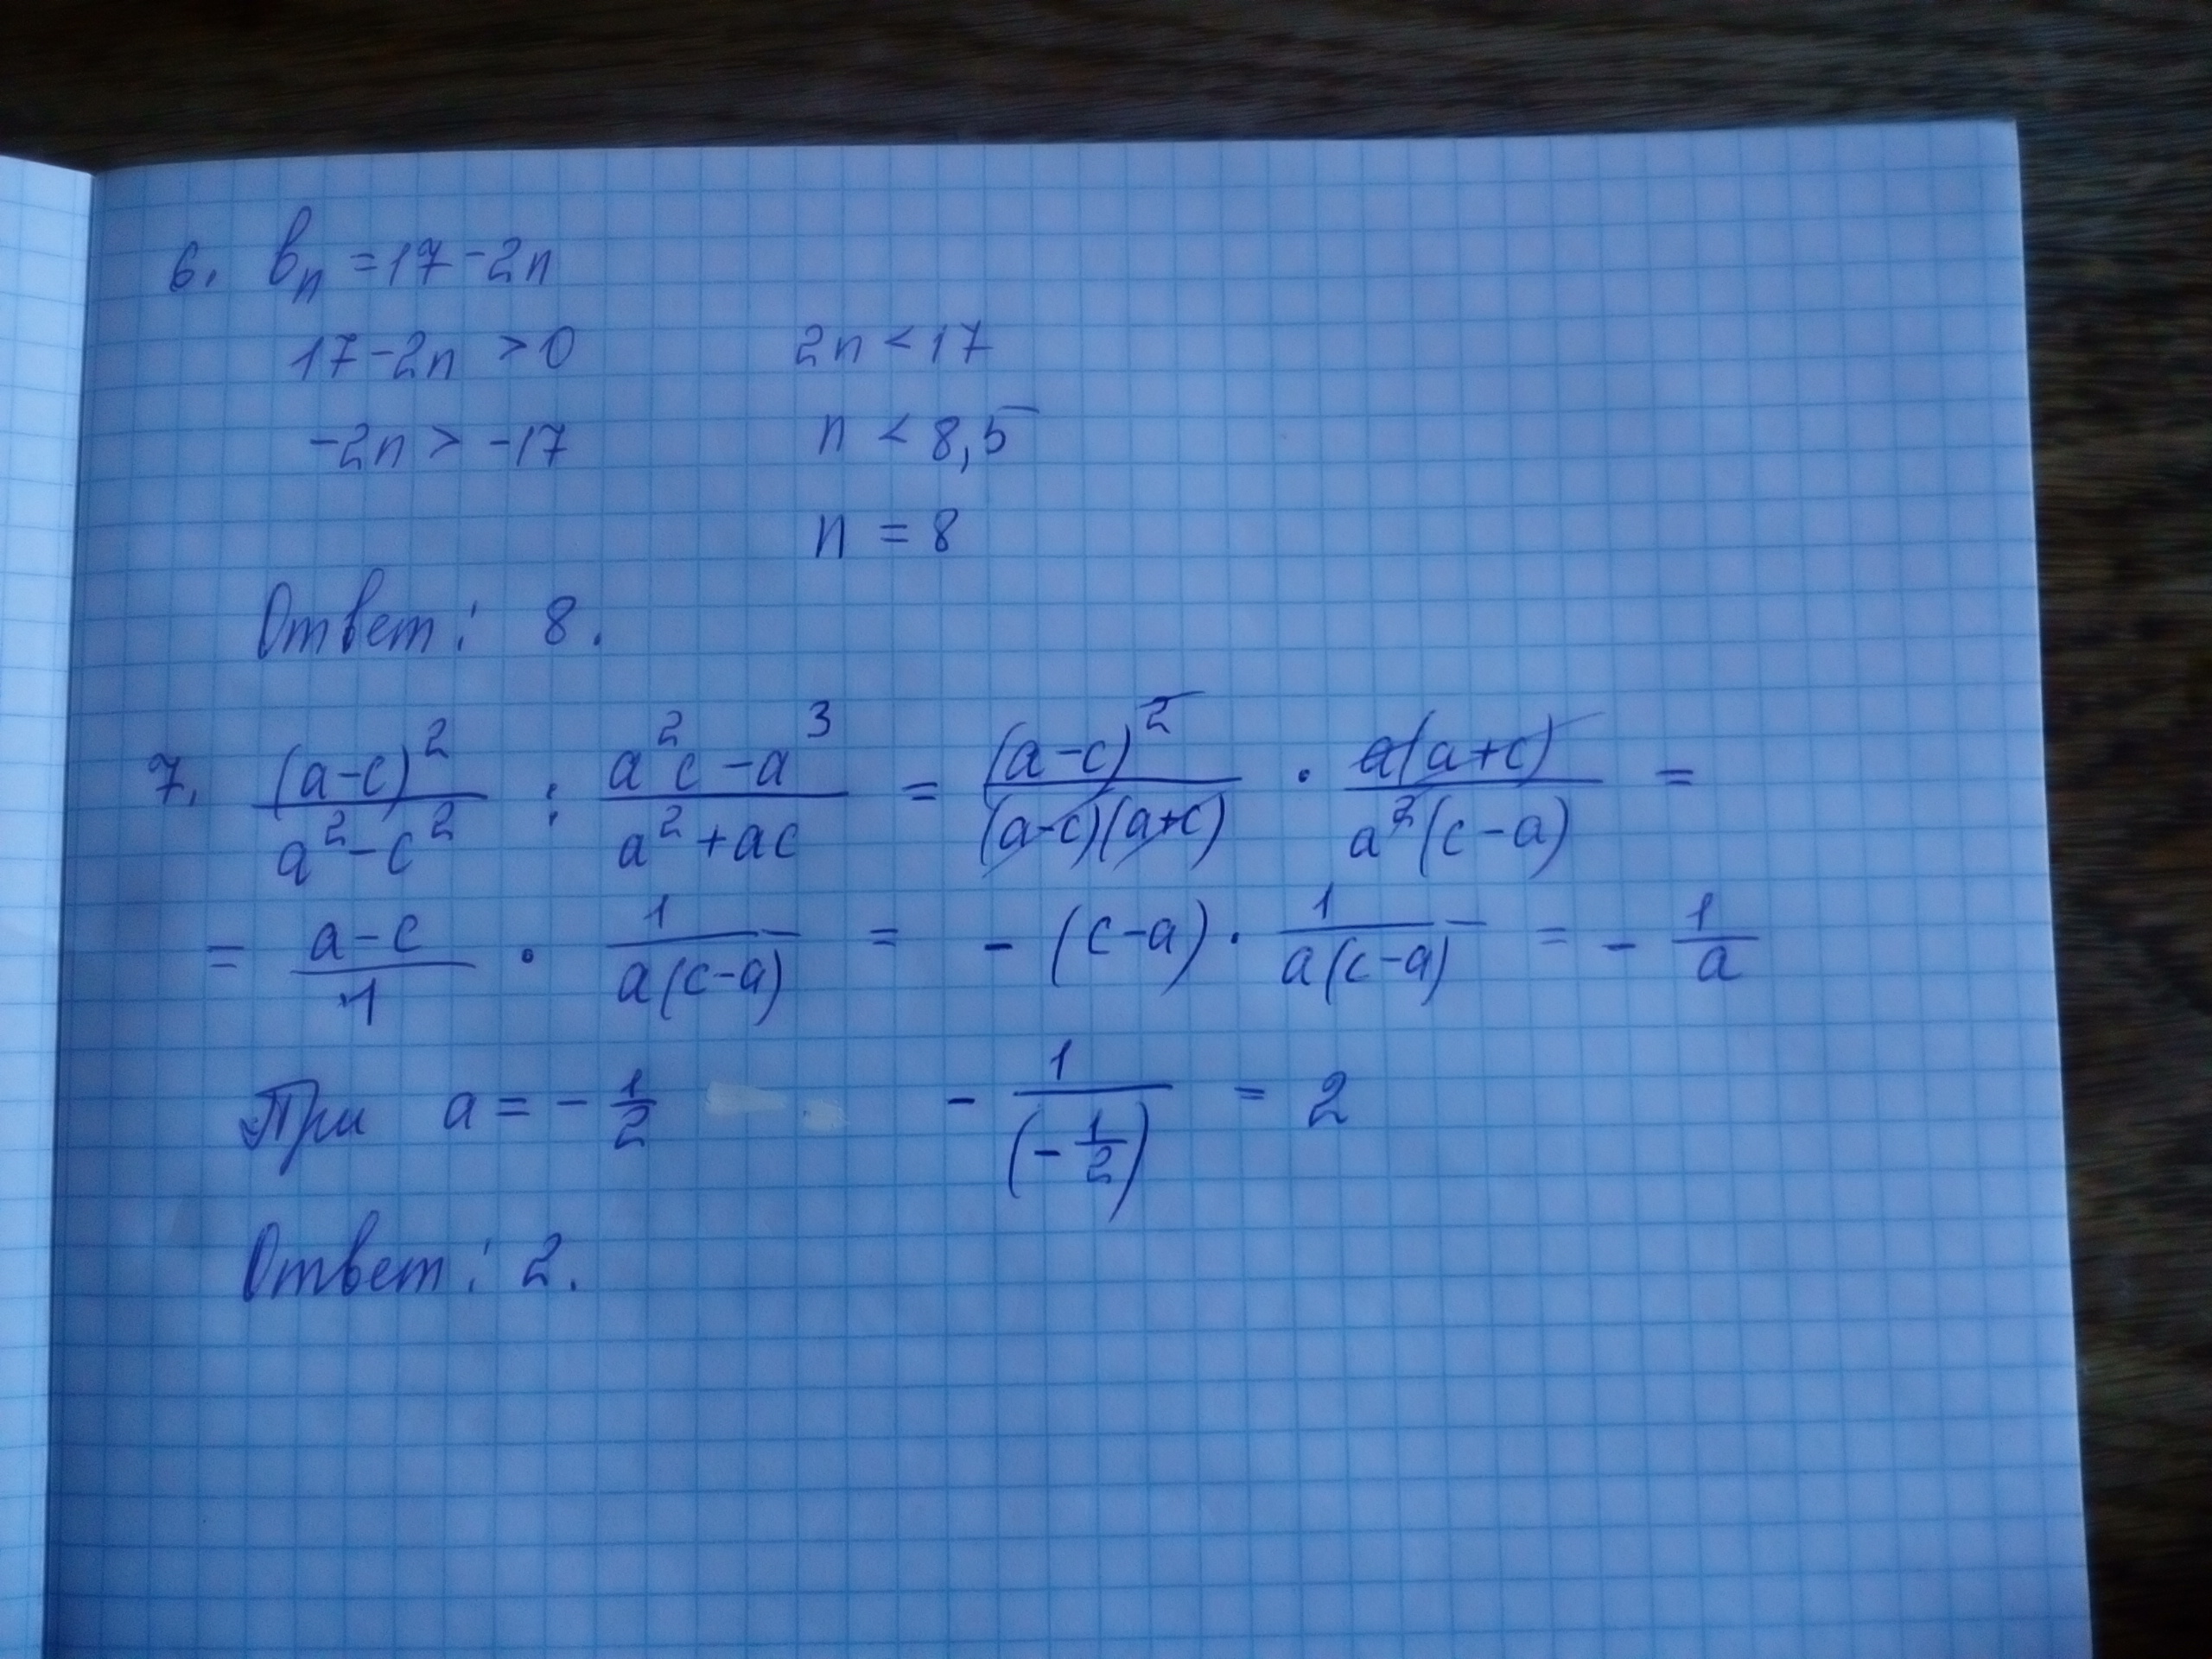 6. вn = 17 - 2n
17 - 2n > 0 2n < 17
-2n > -17 n < 8,5
n = 8
Ответ: 8.
7. (a-c)²/(a²-c²) : (a²c - a³)/(a² + ac) = (a-c)²/((a-c)(a+c)) · a(a+c)/(a²(c-a)) =
= (a-c)/1 · 1/(a(c-a)) = -(c-a) · 1/(a(c-a)) = - 1/a
При a = - 1/2 - 1/(- 1/2) = 2
Ответ: 2.